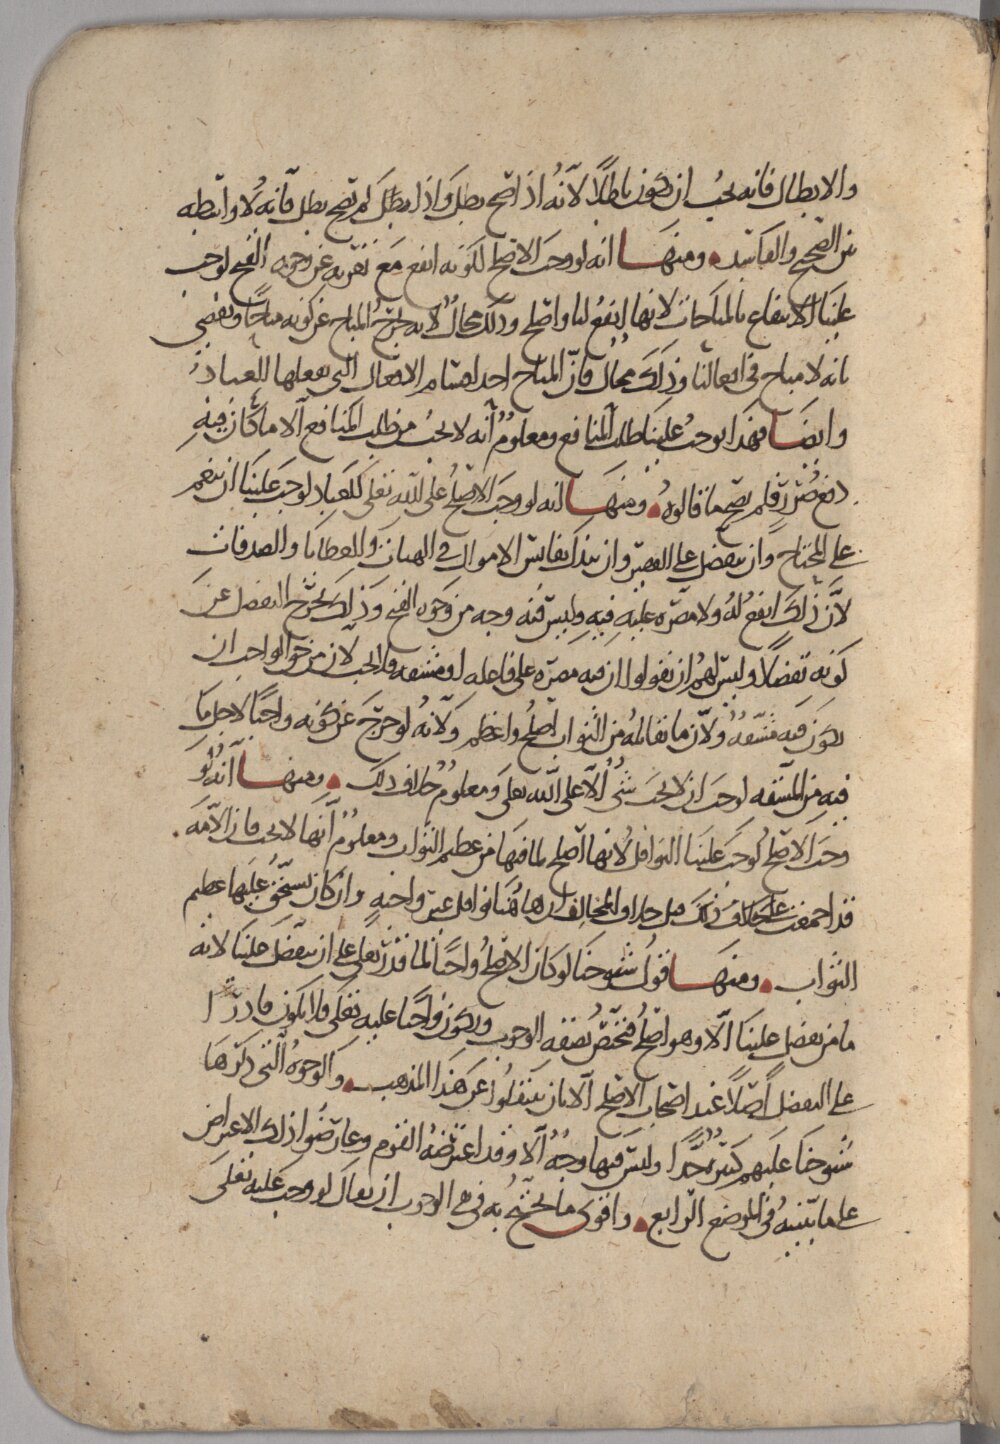 والابطال فانه يجب ان يكون باطلا لانه اذا صح بطل واذا بطل لم يصح بطل فانه لا واسطه
بين الصحيح والفاسد ومنها انه لو وجب الاصلح لكونه انفع مع تعريه عن وجوه القبح لوجب
علينا الانتفاع بالمباحات لانها انفع لنا واصلح وذلك محال لانه يخرج المباح عن كونه مباحا ويقضي
بانه لا مباح في افعالنا وذلك محال فان المباح احد اقسام الافعال التي يفعلها العباد
وايضا فهذا يوجب علينا طلب المنافع ومعلوم انه لا يجب من طلب المنافع الا ما كان فيه
دفع ضرر فلم يصح ما قالوه ومنها انه لو وجب الاصلح على الله تعلى للعباد لوجب علينا ان ننعم
على المحتاج وان نتفضل على الفقير وان نبذل نفايس الاموال في الهبات والعطايا والصدقات
لان ذلك انفع له ولا مضره عليه فيه وليس فيه وجه من وجوه القبح وذلك يخرج التفضل عن
كونه تفضلا وليس لهم ان يقولوا ان فيه مضره على فاعله او مشقه فلا يجب لان من حق الواجب ان
يكون فيه مشقة ولان ما يقابله من الثواب اصلح واعظم ولانه لو خرج عن كونه واجبا لاجل ما
فيه من المشقه لوجب ان لا يجب شي الا على الله تعلى ومعلوم خلاف ذلك ومنها انه لو
وجب الاصلح لوجب علينا النوافل لانها اصلح لما فيها من عظم الثواب ومعلوم انها لا تجب فان الامه
قد اجمعت على خلاف ذلك قبل هاولى المخالفين ان هاهنا نوافل غير واجبة وان كان يستحق عليها عظيم
الثواب ومنها قول شيوخنا لو كان الاصلح واجبا لما قدر تعلى على ان يتفضل علينا لانه
ما من تفضل علينا الا وهو اصلح فتختص بصفه الوجوب ويكون واجبا عليه تعلى فلا يكون قادرا
على التفضل اصلا عند اصحاب الاصلح الا بان ينتقلوا عن هذا المذهب والوجوه التي ذكرها
شيوخنا عليهم كثيرة جدا وليس فيها وجه الا وقد اعترضه القوم وعارضوا ذلك الاعتراض
على ما نبينه في الموضع الرابع واقوى ما يحتج به في هي الوجوب ان يقال لو وجب عليه تعلى